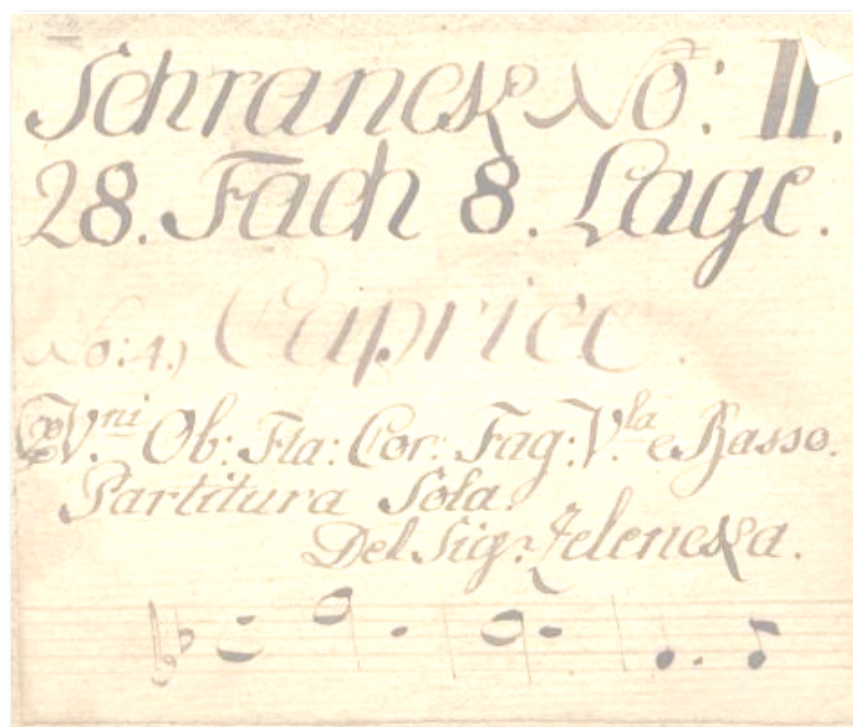 Schranck No: II.
28. Fach 8. Lage.
No: 4.) Caprice.
V.ni Ob: Fla: Cor: Fag: V.la e Basso.
Partitura Sola.
Del Sig: Zelencka.